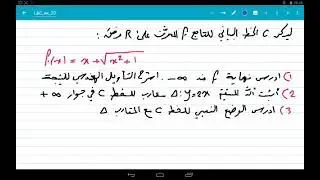 ليكن C الخط البياني للتابع f المعرف على R وفق:
f(x) = x + √x²+1
1) ادرس نهاية f عند -∞ استنتج التأويل الهندسي للنتيجة
2) أثبت أن المستقيم Δ: y=2x مقارب للخط C في جوار +∞
3) ادرس الوضع النسبي للخط C مع المقارب Δ